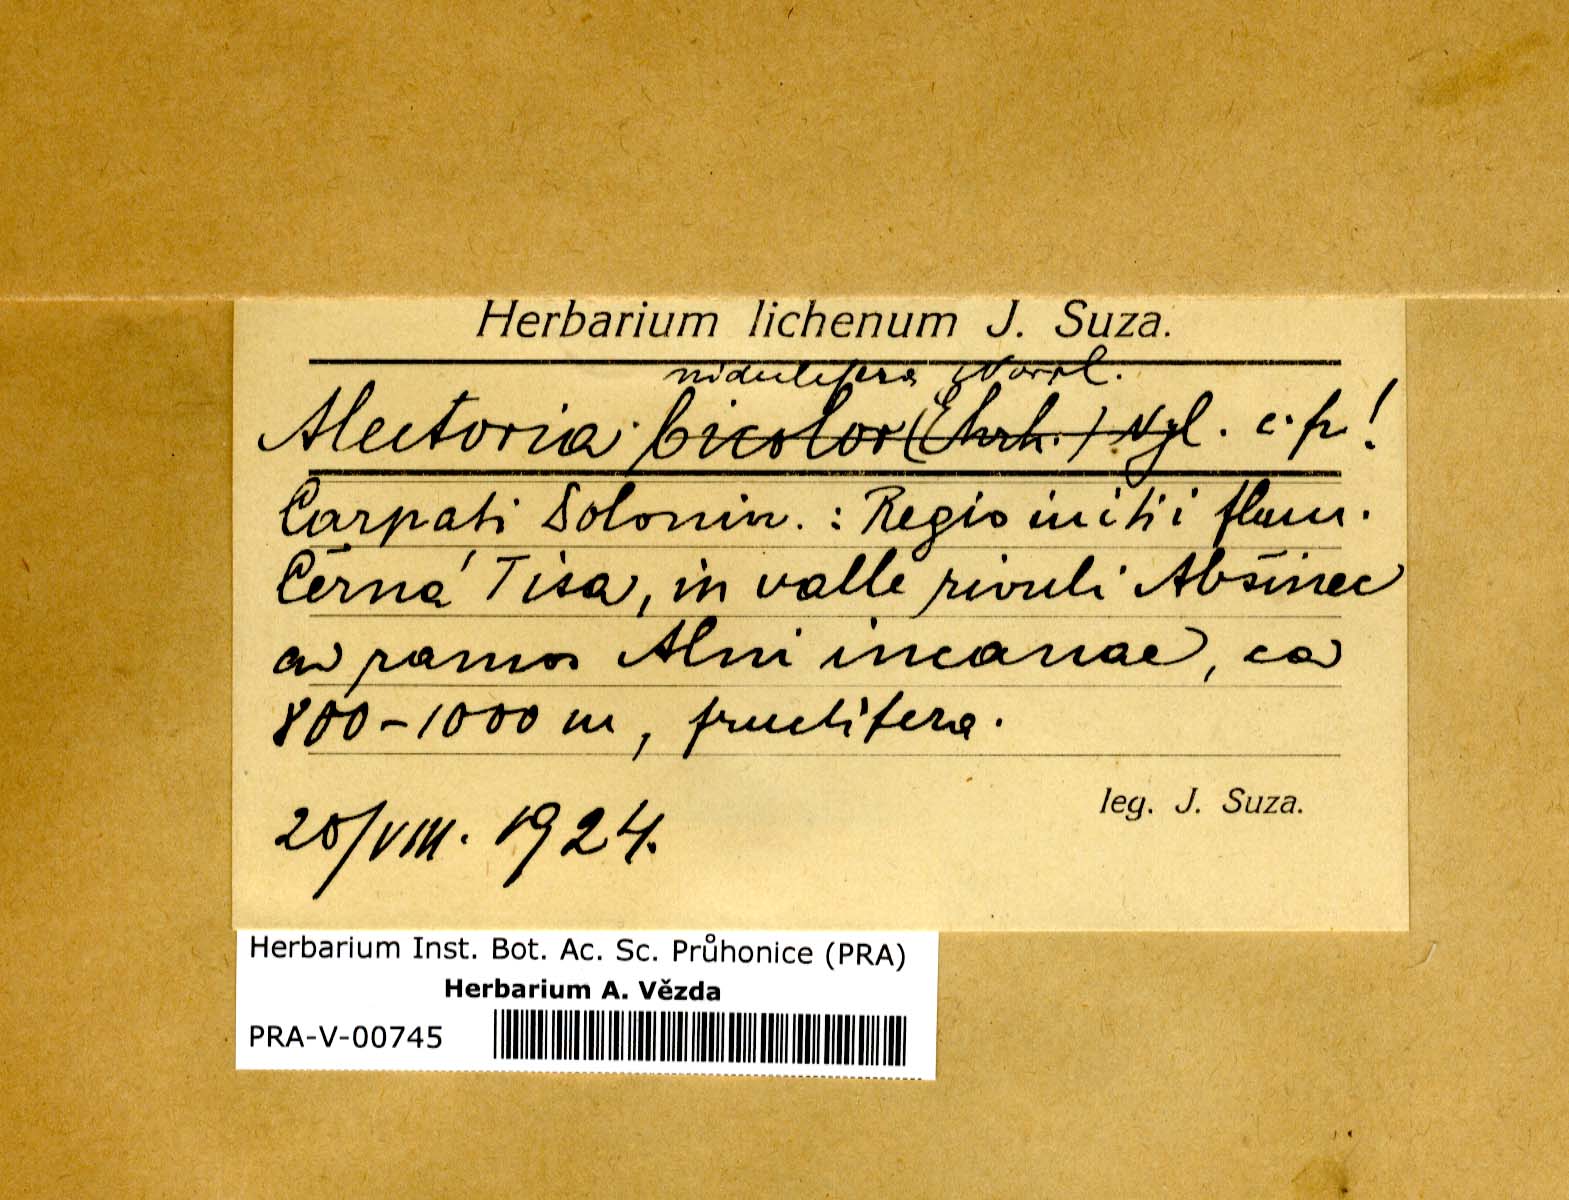 Herbarium lichenum J. Suza.
nidulifera Norrl.
Alectoria bicolor (Ehrh.) Nyl. c. fr!
Carpati Polonin. : Regio initii flum.
Černá Tisa, in valle rivuli Abšinec
ad ramos Alni incanae, ca
800-1000 m, fructifera.
20/VIII. 1924.
leg. J. Suza.
Herbarium Inst. Bot. Ac. Sc. Průhonice (PRA)
Herbarium A. Vězda
PRA-V-00745